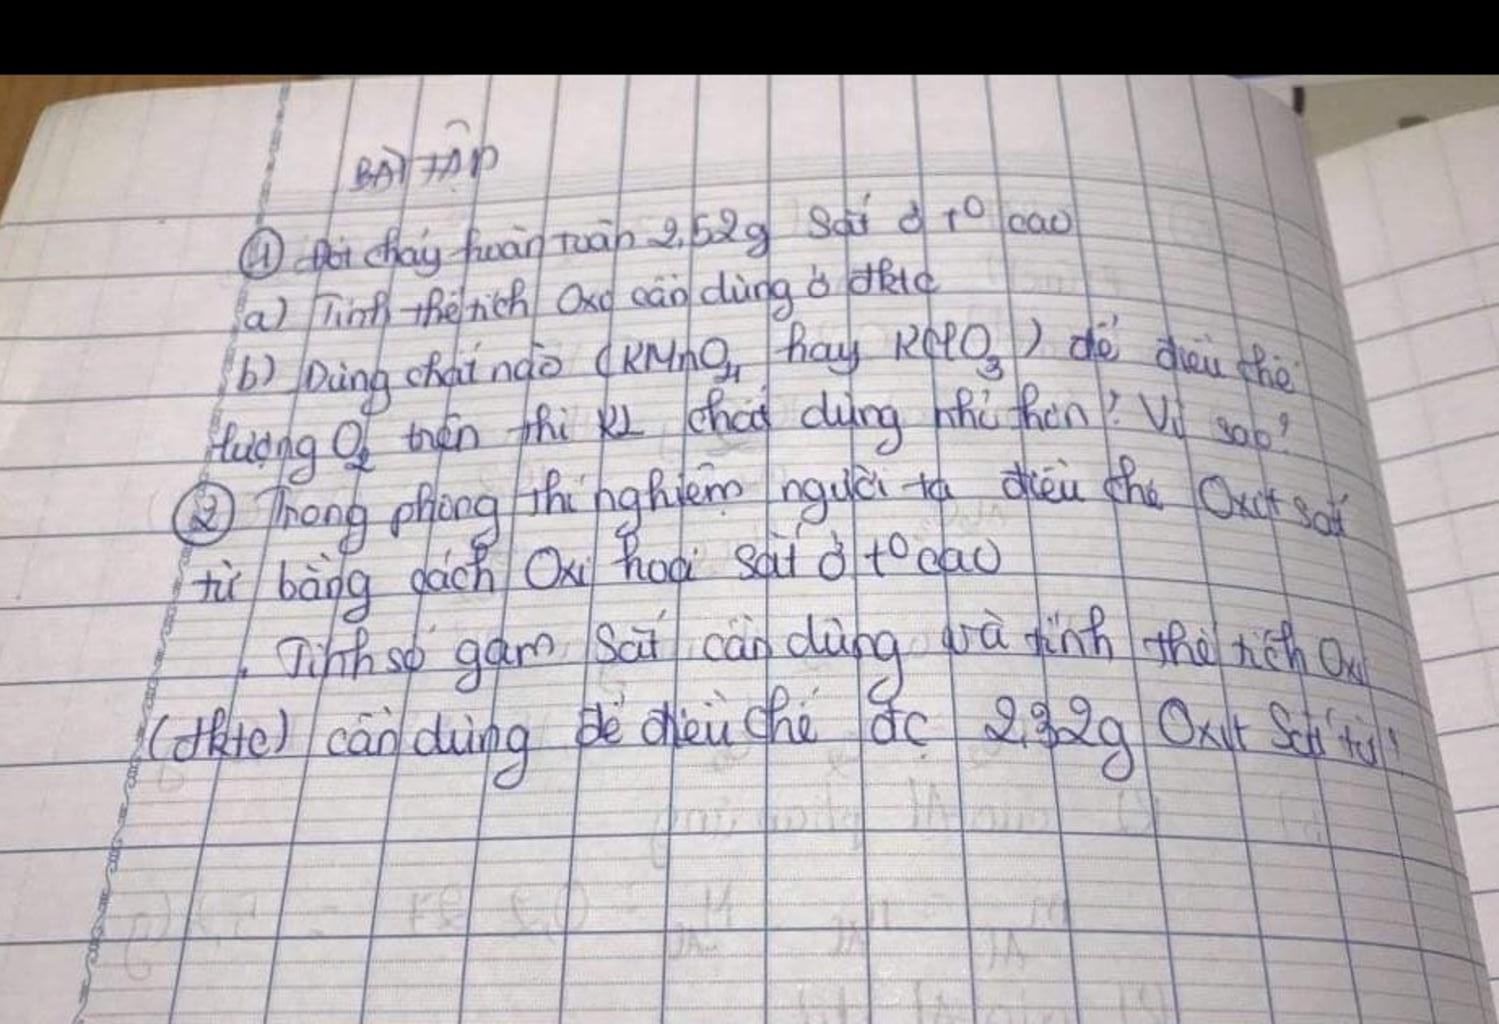 BÀI TẬP
① Đốt cháy hoàn toàn 2,52g Sắt ở t⁰ cao
a) Tính thể tích Oxi cần dùng ở đktc
b) Dùng chất nào (KMnO₄ hay KClO₃) để điều chế
lượng O₂ trên thì KL chất dùng nhỏ hơn? Vì sao?
② Trong phòng thí nghiệm người ta điều chế Oxit sắt
từ bằng cách Oxi hoá sắt ở t⁰ cao
. Tính số gam Sắt cần dùng và tính thể tích Oxi
(đktc) cần dùng để điều chế đc 2,32g Oxit Sắt từ?